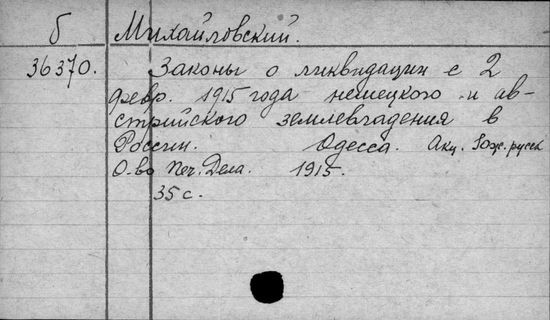 б Михайловский.
36370. Законы о ликвидации с 2
февр. 1915 года немецкого и ав-
стрийского землевладения в
России. Одесса. Акц. Юж. русск
О-во Печ. Дела. 1915.
35 с.